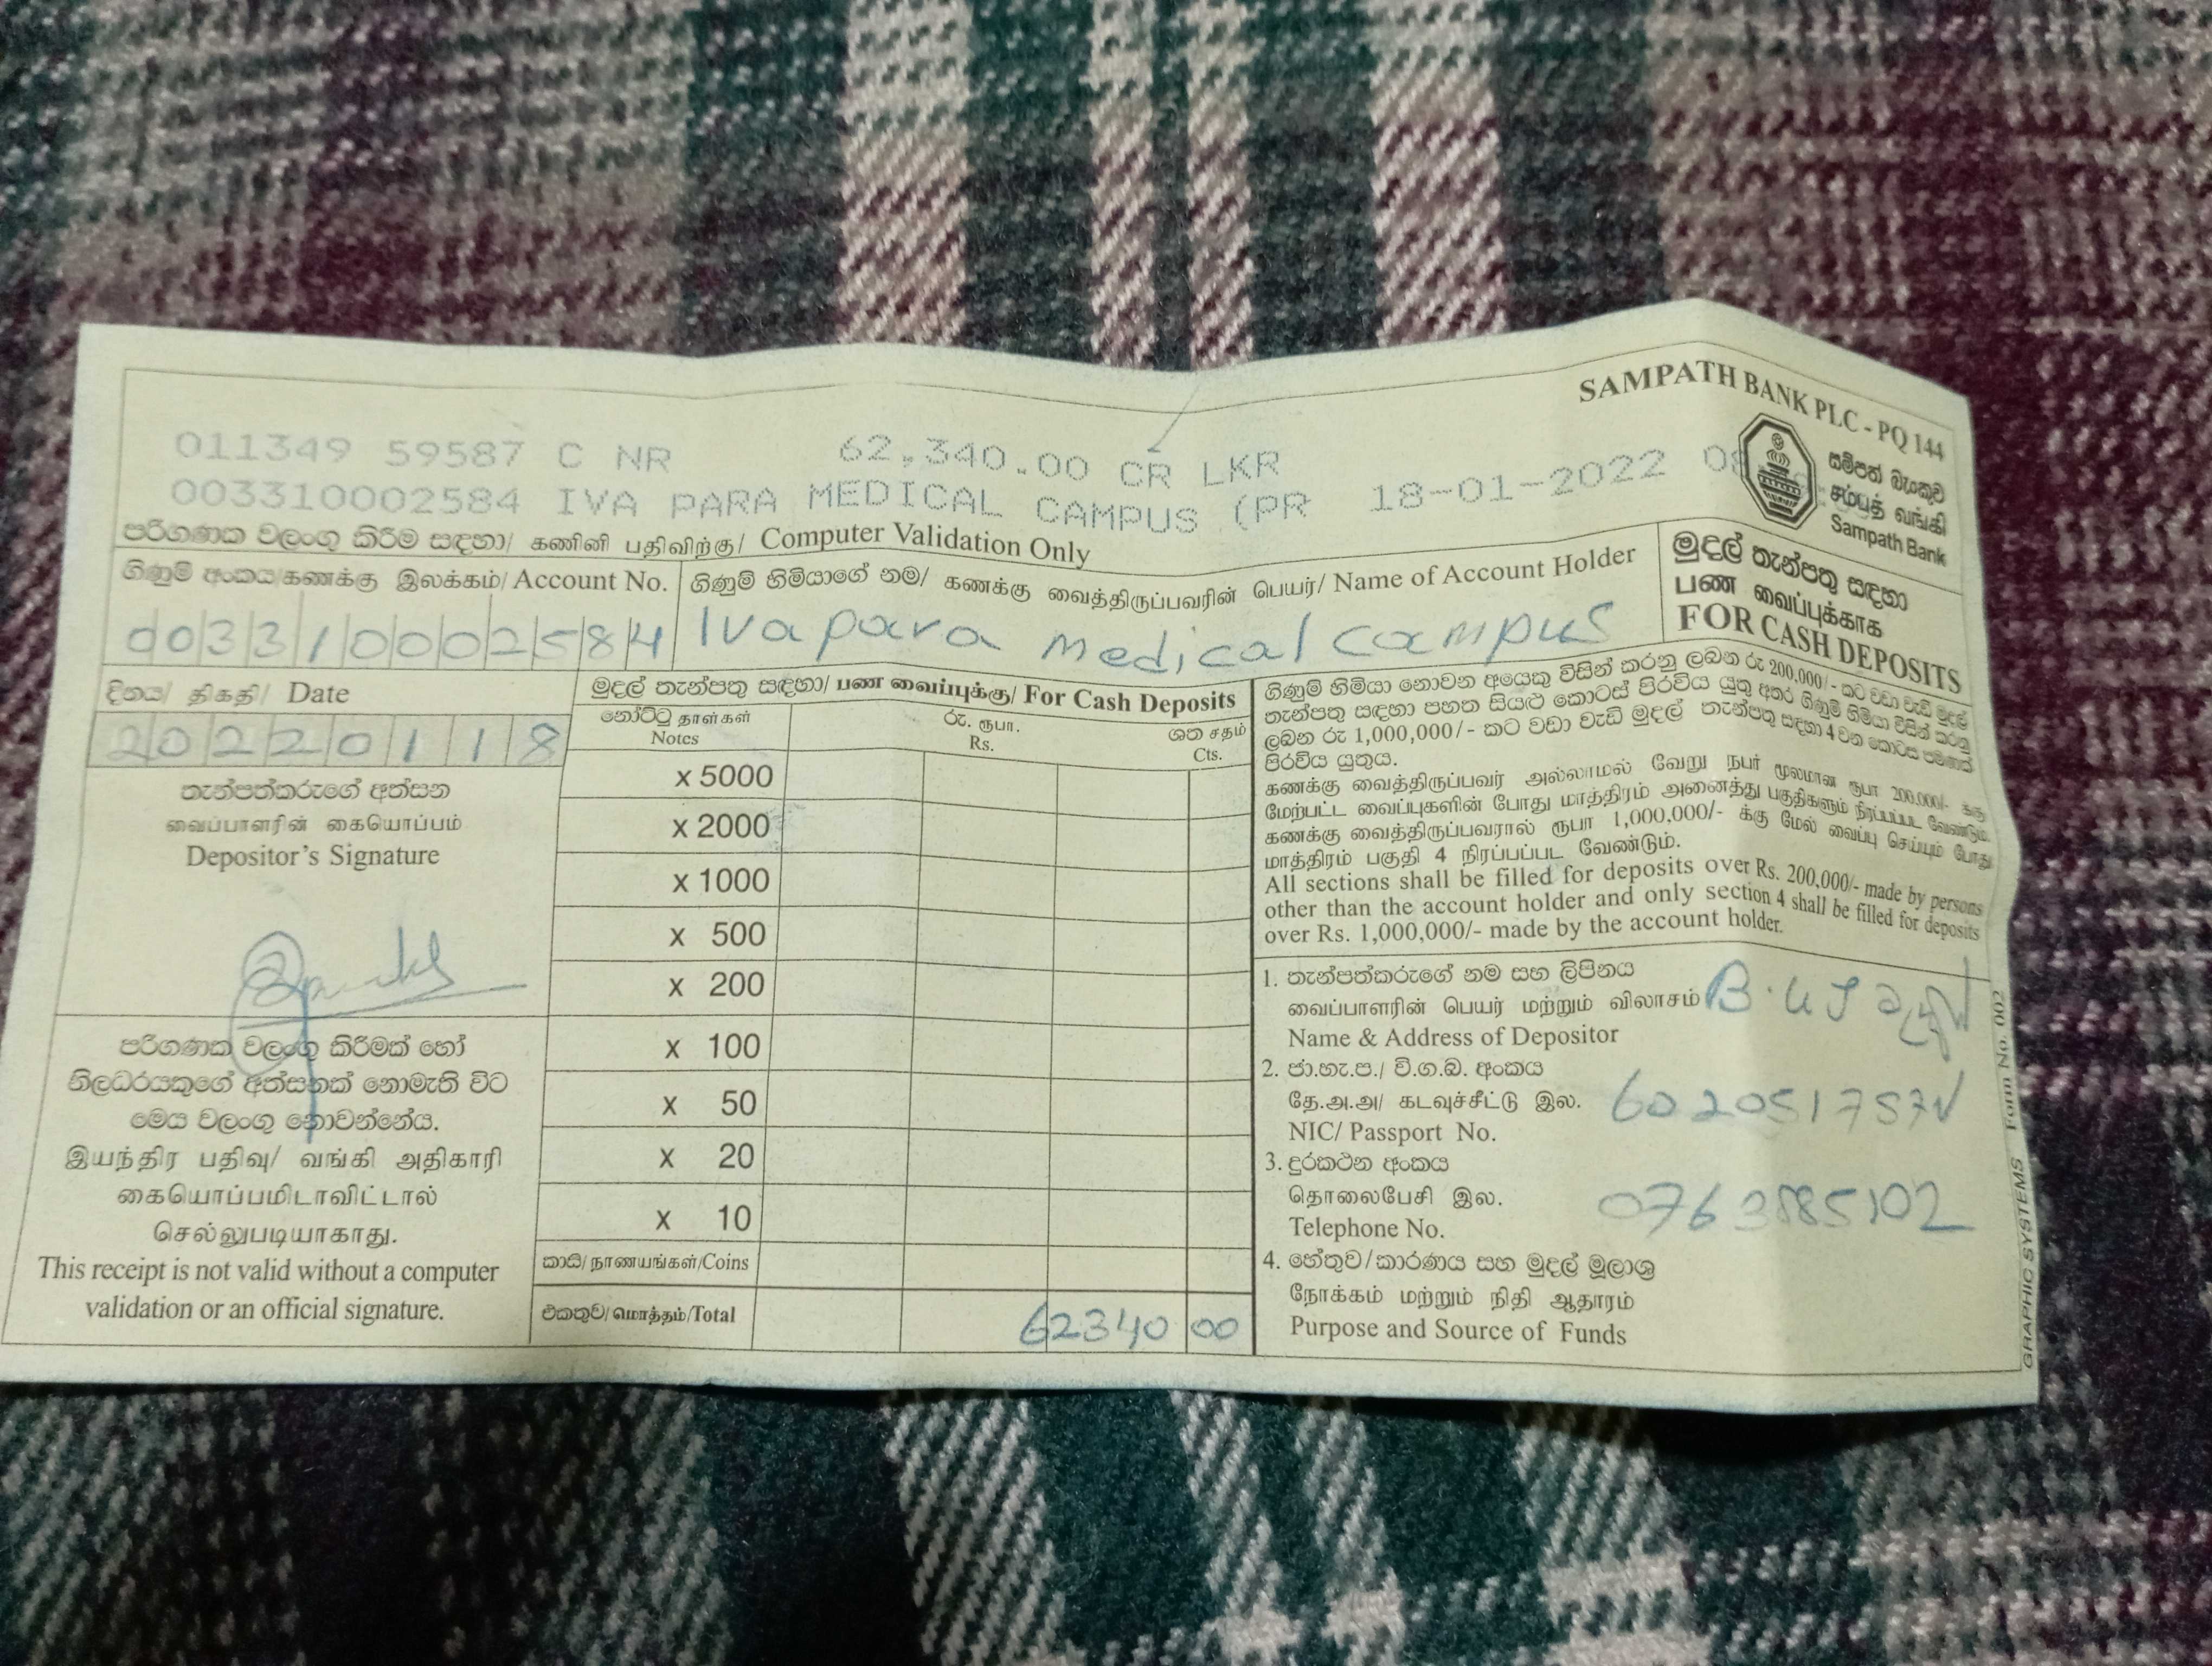 SAMPATH BANK PLC - PQ 144
011349 59587 C NR 62,340.00 CR LKR
003310002584 IVA PARA MEDICAL CAMPUS (PR 18-01-2022
සම්පත් බැංකුව
சம்பத் வங்கி
Sampath Bank
පරිගණක වලංගු කිරීම සඳහා/ கணினி பதிவிற்கு/ Computer Validation Only
මුදල් තැන්පතු සඳහා
பண வைப்புக்காக
FOR CASH DEPOSITS
ගිණුම් අංකය/கணக்கு இலக்கம்/ Account No.
003310002584
ගිණුම් හිමියාගේ නම/ கணக்கு வைத்திருப்பவரின் பெயர்/ Name of Account Holder
Iva para medical campus
දිනය/ திகதி/ Date
20220118
තැන්පත්කරුගේ අත්සන
வைப்பாளரின் கையொப்பம்
Depositor's Signature
පරිගණක වලංගු කිරීමක් හෝ
නිලධරයකුගේ අත්සනක් නොමැති විට
මෙය වලංගු නොවන්නේය.
இயந்திர பதிவு/ வங்கி அதிகாரி
கையொப்பமிடாவிட்டால்
செல்லுபடியாகாது.
This receipt is not valid without a computer
validation or an official signature.
මුදල් තැන්පතු සඳහා/ பண வைப்புக்கு/ For Cash Deposits
නෝට්ටු தாள்கள்
Notes
රු. ரூபா.
Rs.
ශත சதம்
Cts.
x 5000
x 2000
x 1000
x 500
x 200
x 100
x 50
x 20
x 10
කාසි/நாணயங்கள்/Coins
එකතුව/மொத்தம்/Total 62340 00
ගිණුම් හිමියා නොවන අයෙකු විසින් කරනු ලබන රු 200,000/- කට වඩා වැඩි මුදල්
තැන්පතු සඳහා පහත සියළු කොටස් පිරවිය යුතු අතර ගිණුම් හිමියා විසින් කරනු
ලබන රු 1,000,000/- කට වඩා වැඩි මුදල් තැන්පතු සඳහා 4 වන කොටස පමණක්
පිරවිය යුතුය.
கணக்கு வைத்திருப்பவர் அல்லாமல் வேறு நபர் மூலமான ரூபா 200,000/- க்கு
மேற்பட்ட வைப்புகளின் போது மாத்திரம் அனைத்து பகுதிகளும் நிரப்பப்பட வேண்டும்.
கணக்கு வைத்திருப்பவரால் ரூபா 1,000,000/- க்கு மேல் வைப்பு செய்யும் போது
மாத்திரம் பகுதி 4 நிரப்பப்பட வேண்டும்.
All sections shall be filled for deposits over Rs. 200,000/- made by persons
other than the account holder and only section 4 shall be filled for deposits
over Rs. 1,000,000/- made by the account holder.
1. තැන්පත්කරුගේ නම සහ ලිපිනය
வைப்பாளரின் பெயர் மற்றும் விலாசம்
Name & Address of Depositor
2. ජා.හැ.ප./ වි.ග.බ. අංකය
தே.அ.அ/ கடவுச்சீட்டு இல.
NIC/ Passport No.
602051757V
3. දුරකථන අංකය
தொலைபேசி இல.
Telephone No.
0763885102
4. හේතුව/කාරණය සහ මුදල් මූලාශ්‍ර
நோக்கம் மற்றும் நிதி ஆதாரம்
Purpose and Source of Funds
GRAPHIC SYSTEMS Form No. 002